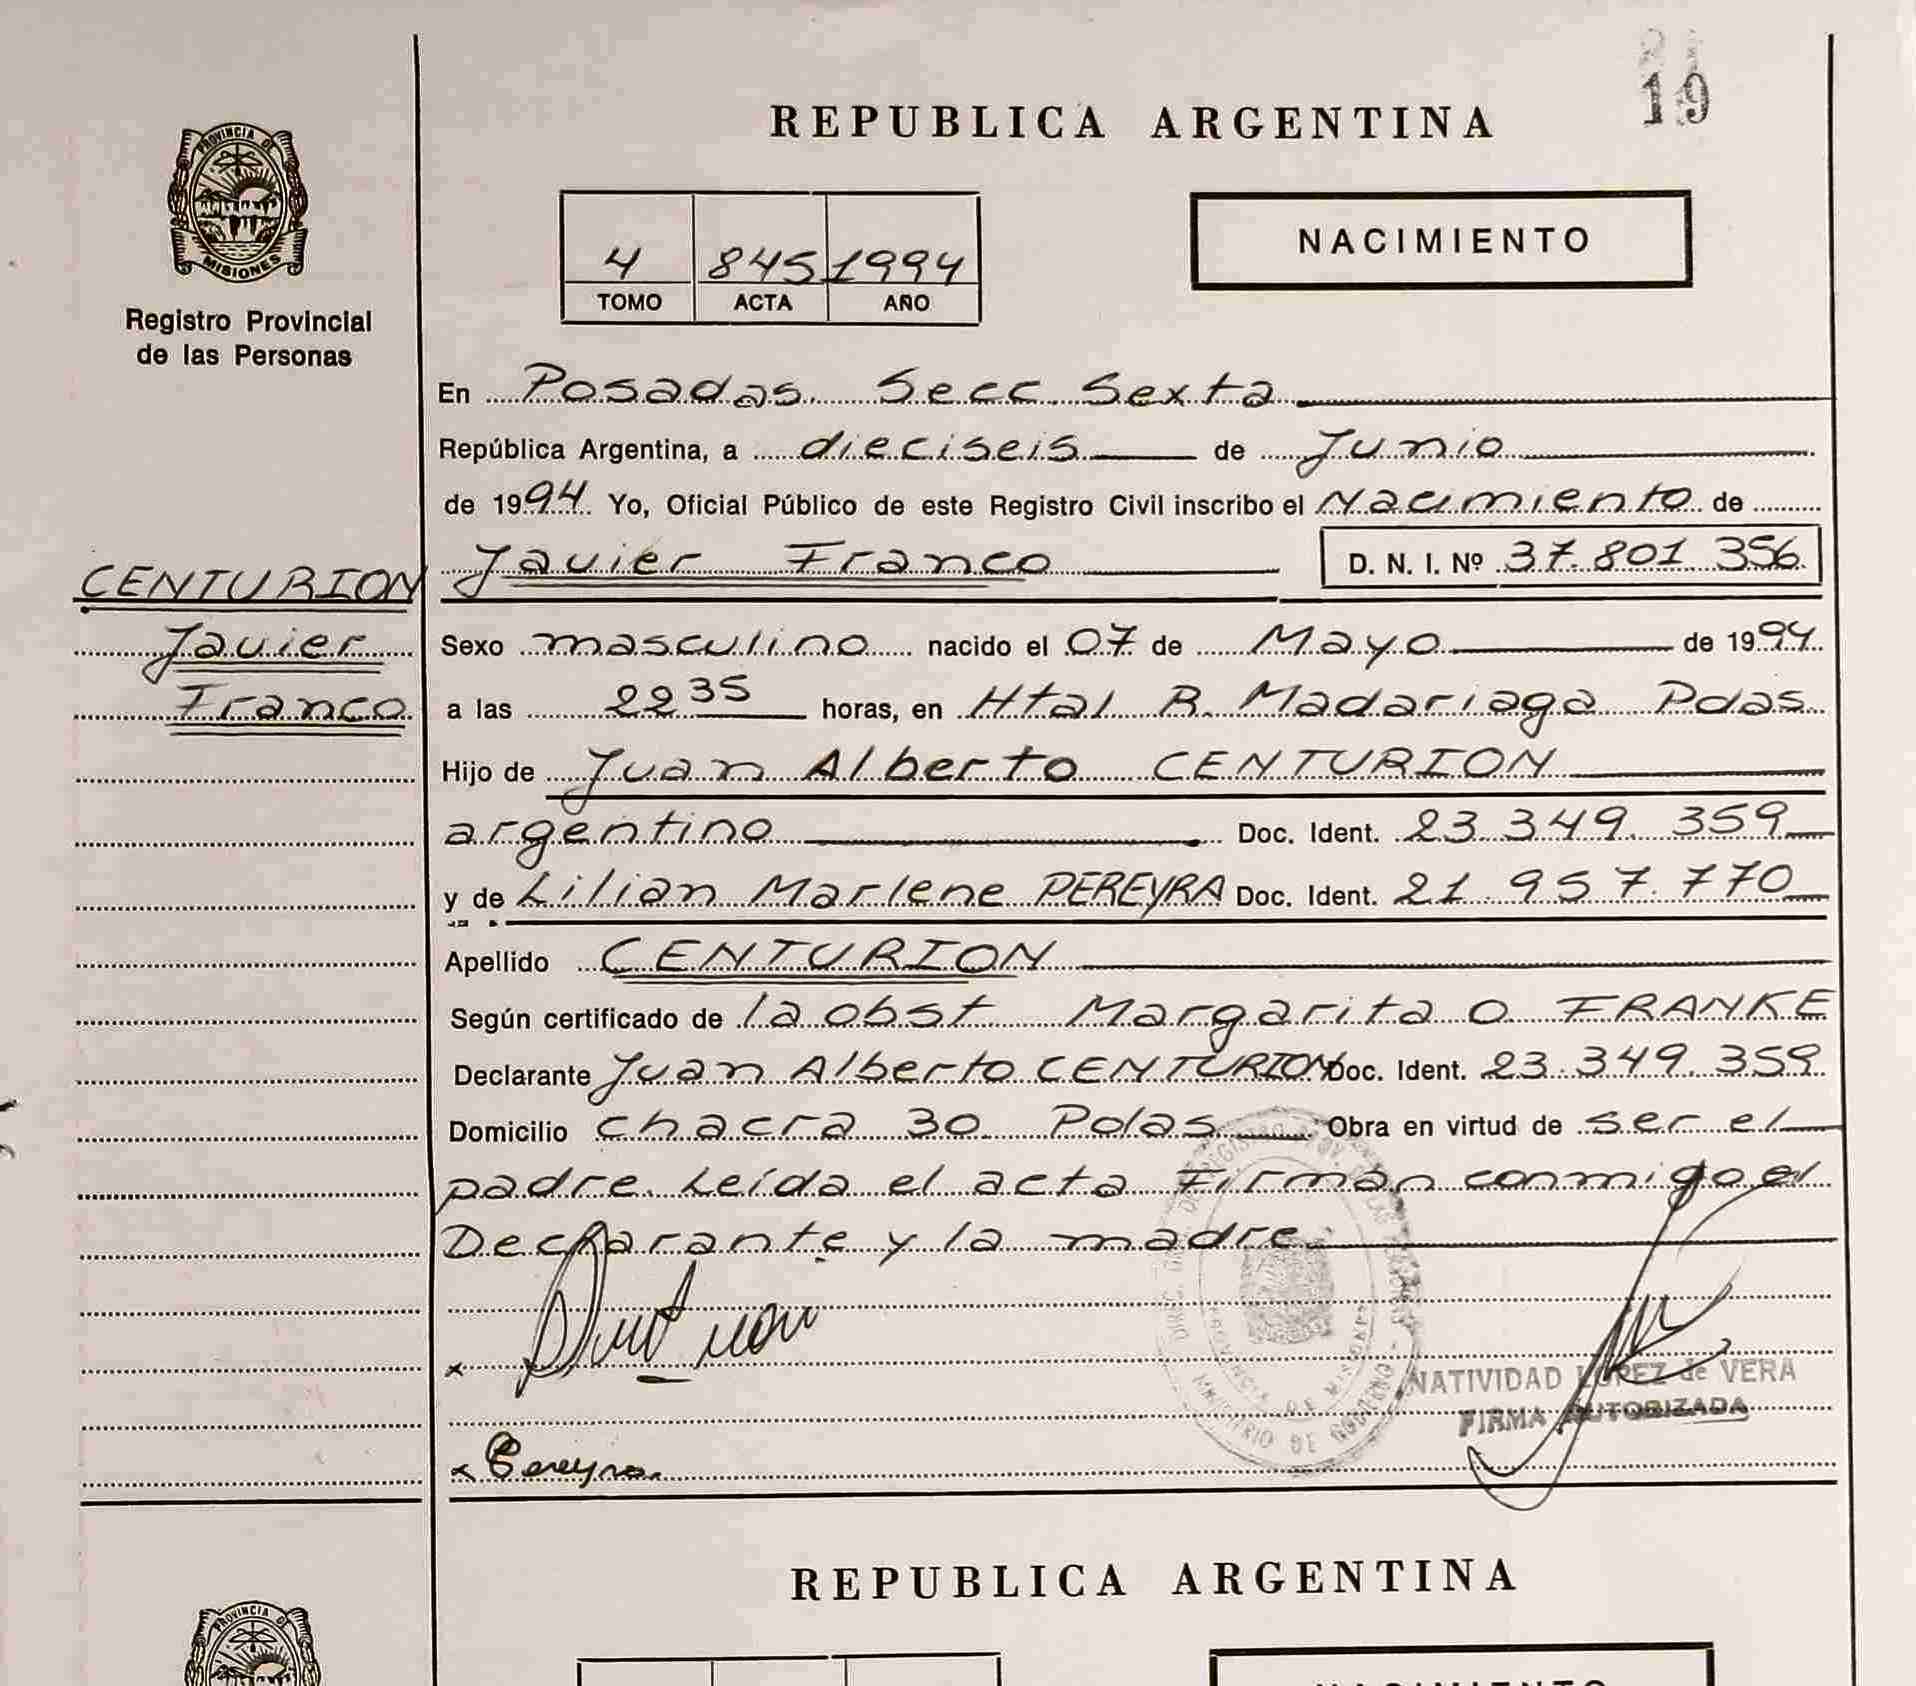 19
REPUBLICA ARGENTINA
PROVINCIA DE
MISIONES
Registro Provincial
de las Personas
4 845 1994
TOMO ACTA AÑO
NACIMIENTO
En Posadas Secc. Sexta
República Argentina, a dieciseis de Junio
de 1994. Yo, Oficial Público de este Registro Civil inscribo el Nacimiento de
CENTURION
Javier
Franco
Javier Franco D. N. I. Nº 37.801 356
Sexo masculino nacido el 07 de Mayo de 1994
a las 22 35 horas, en Htal R. Madariaga Pdas
Hijo de Juan Alberto CENTURION
argentino Doc. Ident. 23 349. 359
y de Lilian Marlene PEREYRA Doc. Ident. 21 957.770
Apellido CENTURION
Según certificado de la obst Margarita O FRANKE
Declarante Juan Alberto CENTURION Doc. Ident. 23.349.359
Domicilio chacra 30 Pdas Obra en virtud de ser el
padre. Leída el acta Firman conmigo el
Declarante y la madre.
NATIVIDAD LOPEZ de VERA
FIRMA AUTORIZADA
x Pereyra.
REPUBLICA ARGENTINA
PROVINCIA DE
NACIMIENTO